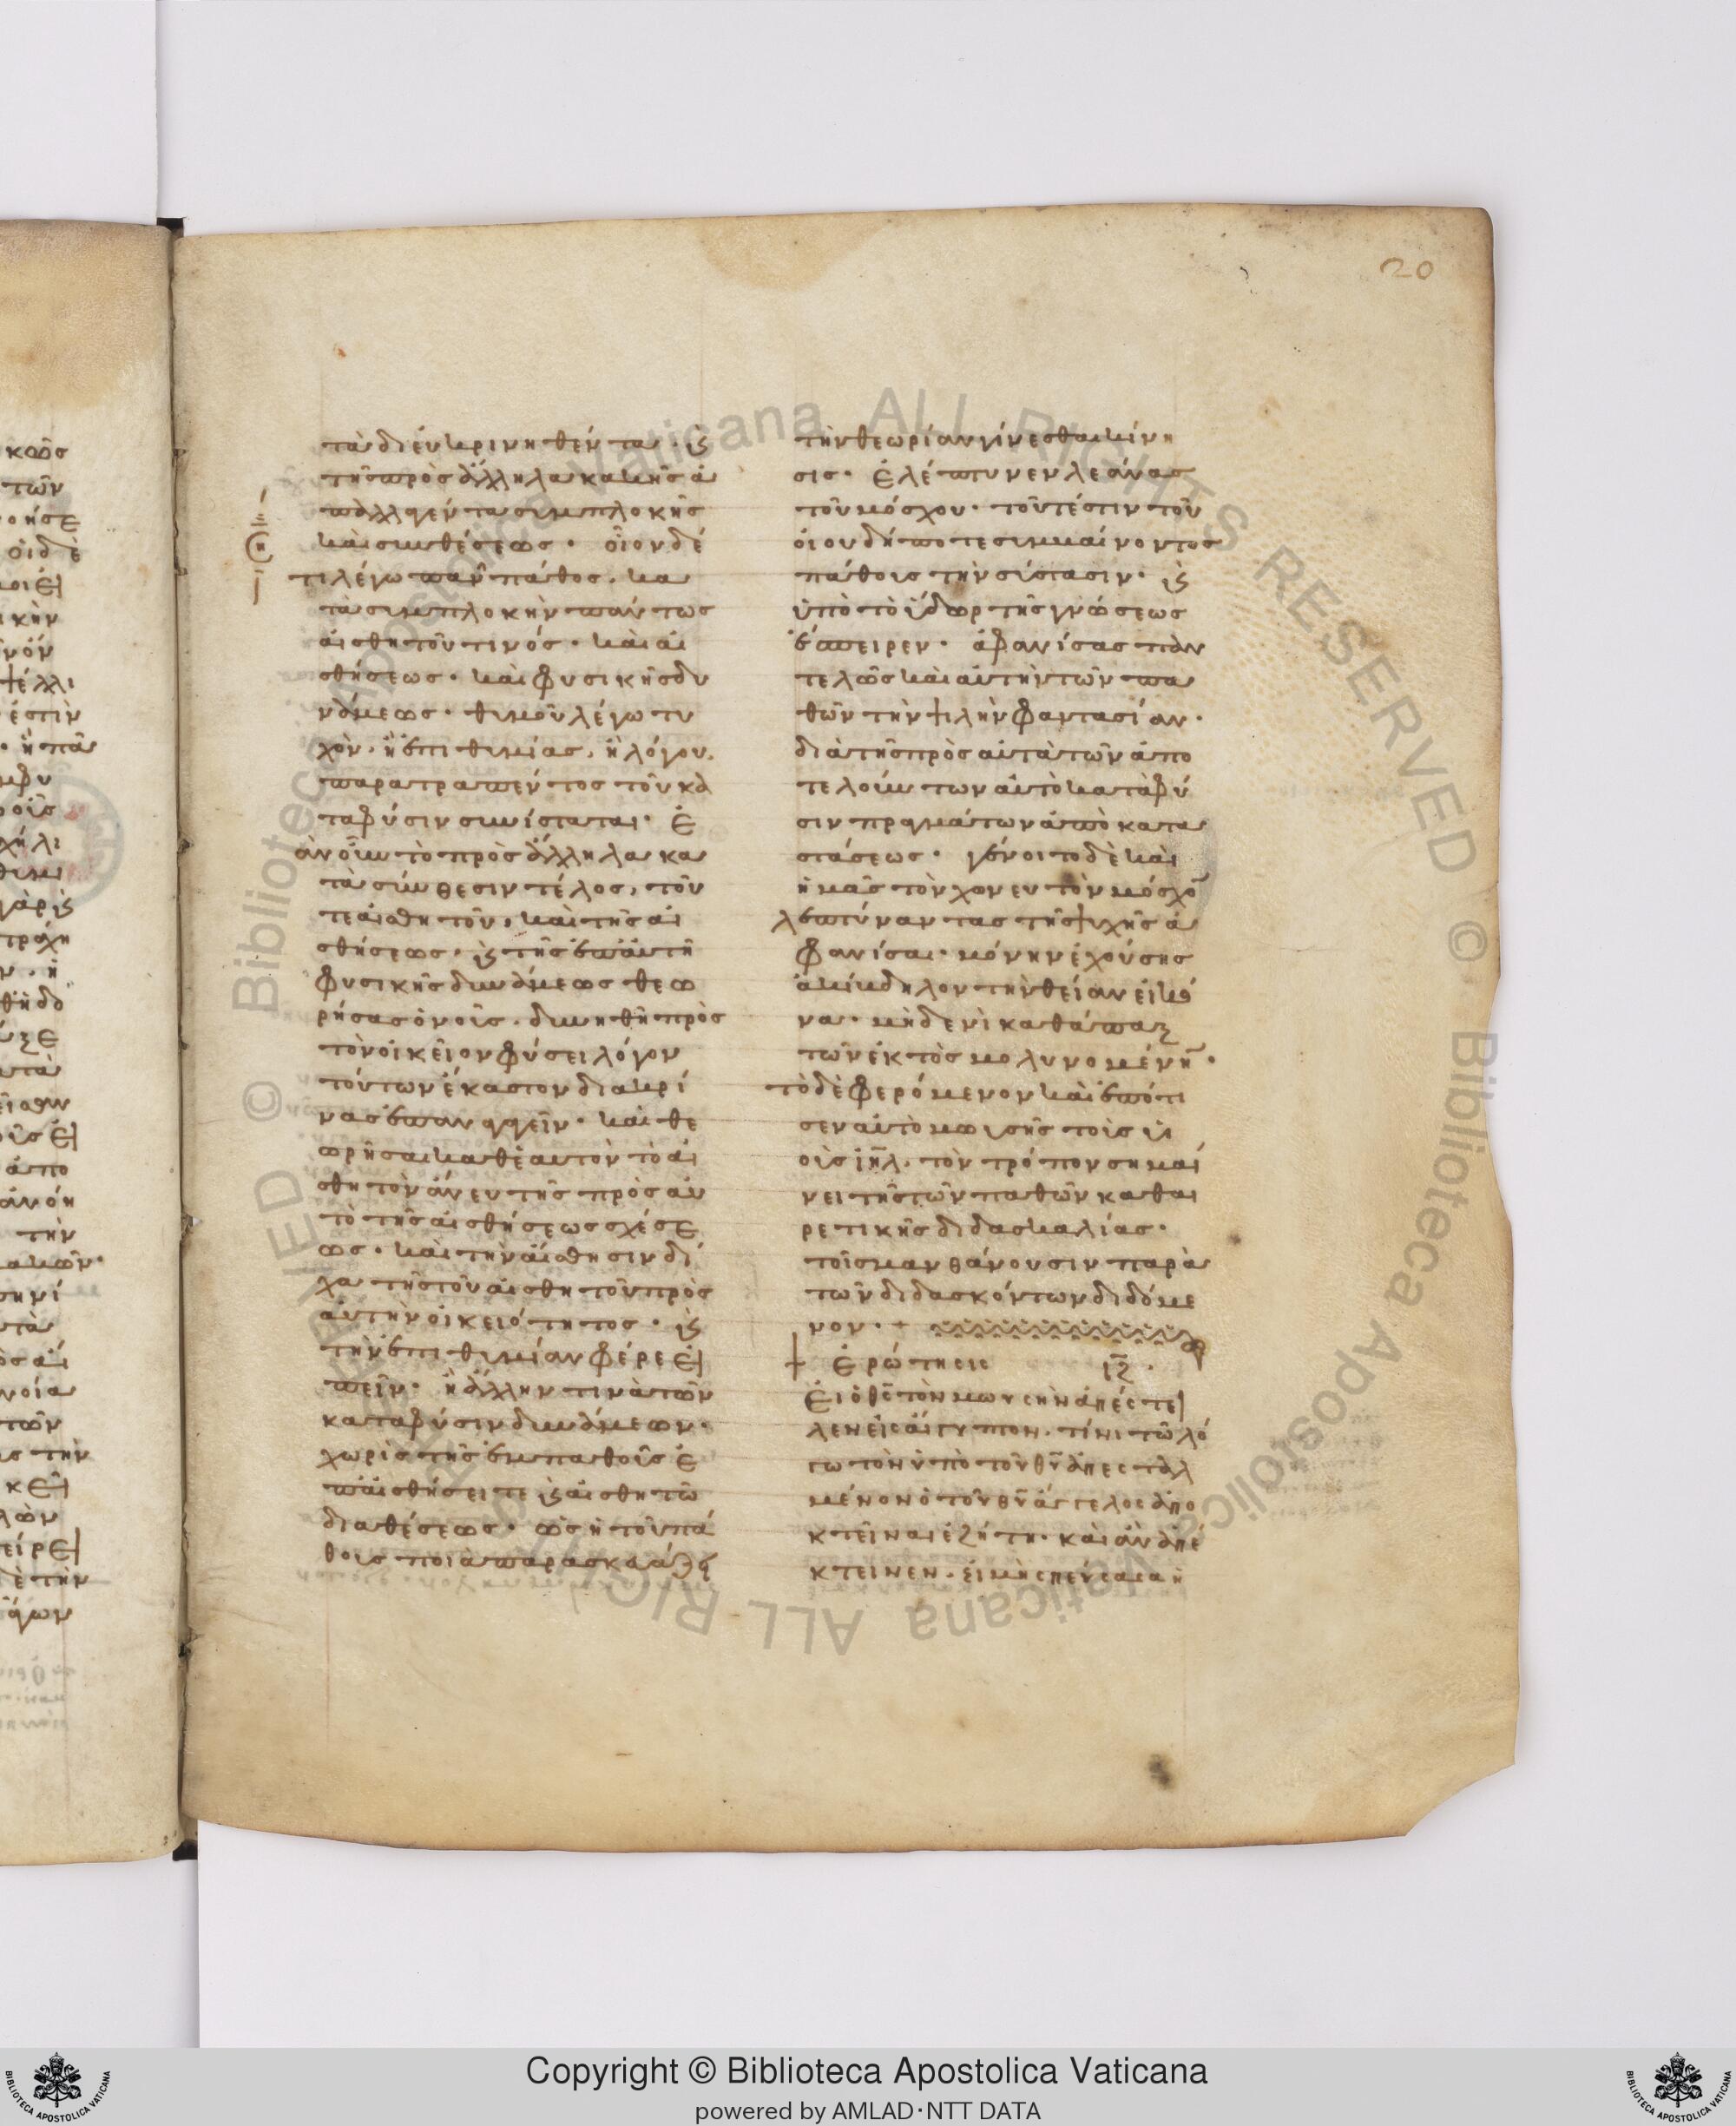 20
τὰ διευκρινηθέντα· ϗ
τῆς πρὸς ἄλληλα κακῆς ἀ
παλλαγέντα συμπλοκῆς
καὶ συνθέσεως· οἷον δέ
τι λέγω πᾶν πάθος· κα
τὰ συμπλοκὴν πάντως
αἰσθητοῦ τινός· καὶ αἰ
σθήσεως· καὶ φυσικῆς δυ
νάμεως· θυμοῦ λέγω τυ
χὸν· ἢ ἐπιθυμίας, ἢ λόγου,
παρατραπέντος τοῦ κα
τὰ φύσιν συνίσταται· ἐ
ὰν οὖν τὸ πρὸς ἄλληλα κα
τὰ σύνθεσιν τέλος, τοῦ
τε αἰσθητοῦ, καὶ τῆς αἰ
σθήσεως· ϗ τῆς ἐπ' αὐτῆ
φυσικῆς δυνάμεως θεω
ρήσας ὁ νοῦς· δυνηθῆ πρὸς
τὸν οἰκεῖον φύσει λόγον
τούτων ἕκαστον διακρί
νας ἐπαναγαγεῖν· καὶ θε
ωρῆσαι καθ' ἑαυτὸν τὸ αἰ
σθητὸν ἄνευ τῆς πρὸς αὐ
τὸ τῆς αἰσθήσεως σχέσε
ως· καὶ τὴν αἴσθησιν δί
χα τῆς τοῦ αἰσθητοῦ πρὸς
αὐτὴν οἰκειότητος· ϗ
τὴν ἐπιθυμίαν φέρε εἰ
πεῖν· ἢ ἄλλην τινὰ τῶν
κατὰ φύσιν δυνάμεων·
χωρὶς τῆς ἐμπαθοῦς ἐ
π' αἰσθήσει τε ϗ αἰσθητῶ
διαθέσεως· ὡς ἡ τοῦ πά
θους ποιὰ παρασκευάζει
τὴν θεωρίαν γίνεσθαι κίνη
σις· ἐλέπτυνεν λεάνας
τοῦ μόσχου· τουτέστιν τοῦ
οἱουδήποτε συμβαίνοντος
πάθους τὴν σύστασιν· ϗ
ὑπὸ τὸ ὕδωρ τῆς γνώσεως
ἔσπειρεν· ἀφανίσας παν
τελῶς καὶ αὐτὴν τῶν πα
θῶν τὴν ψιλὴν φαντασίαν·
διὰ τῆς πρὸς αὐτὰ τῶν ἀπο
τελούντων αὐτὸ κατὰ φύ
σιν πραγμάτων ἀποκατα
στάσεως· γένοιτο δὲ καὶ
ἡμᾶς τὸν χωνευτὸν μόσχο
λεπτύναντας τῆς ψυχῆς ἀ
φανίσαι· μόνην ἐχούσης
ἀκίβδηλον τὴν θείαν εἰκό
να· μηδενὶ καθάπαξ
τῶν ἐκτὸς μολυνομένη·
τὸ δὲ φερόμενον καὶ ἐπότι
σεν αὐτὸ μωυσῆς τοὺς υἱ
οὺς ιηλ· τὸν τρόπον σημαί
νει τῆς τῶν παθῶν καθαι
ρετικῆς διδασκαλίας·
τοῖς μανθάνουσιν παρὰ
τῶν διδασκόντων διδόμε
νον· +
+ ἐρώτησις ιζ·
εἰ ὁ θς τὸν μωυσῆν ἀπέστει
λεν εἰς αἴγυπτον· τίνι τῶ λό
γω τὸν ὑπὸ τοῦ θυ ἀπεσταλ
μένον ὁ τοῦ θυ ἄγγελος ἀπο
κτεῖναι ἐζήτη· καὶ ἂν ἀπέ
κτεινεν· εἰ μὴ σπεύσασα ἡ